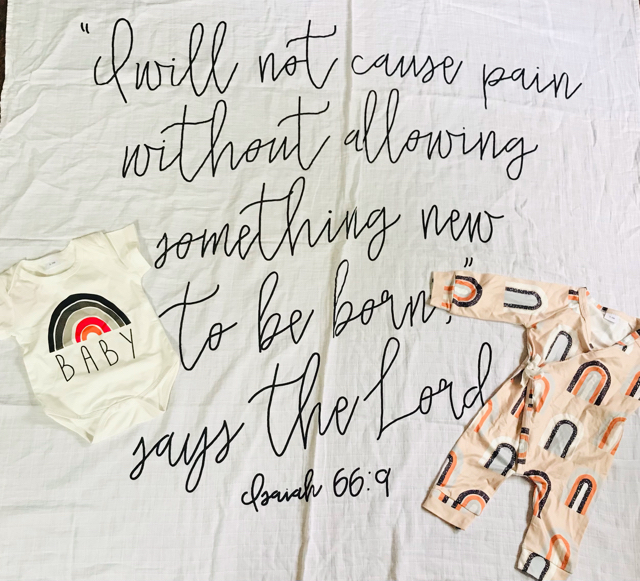 "I will not cause pain
without allowing
something new
to be born,"
says the Lord
Isaiah 66:9
BABY